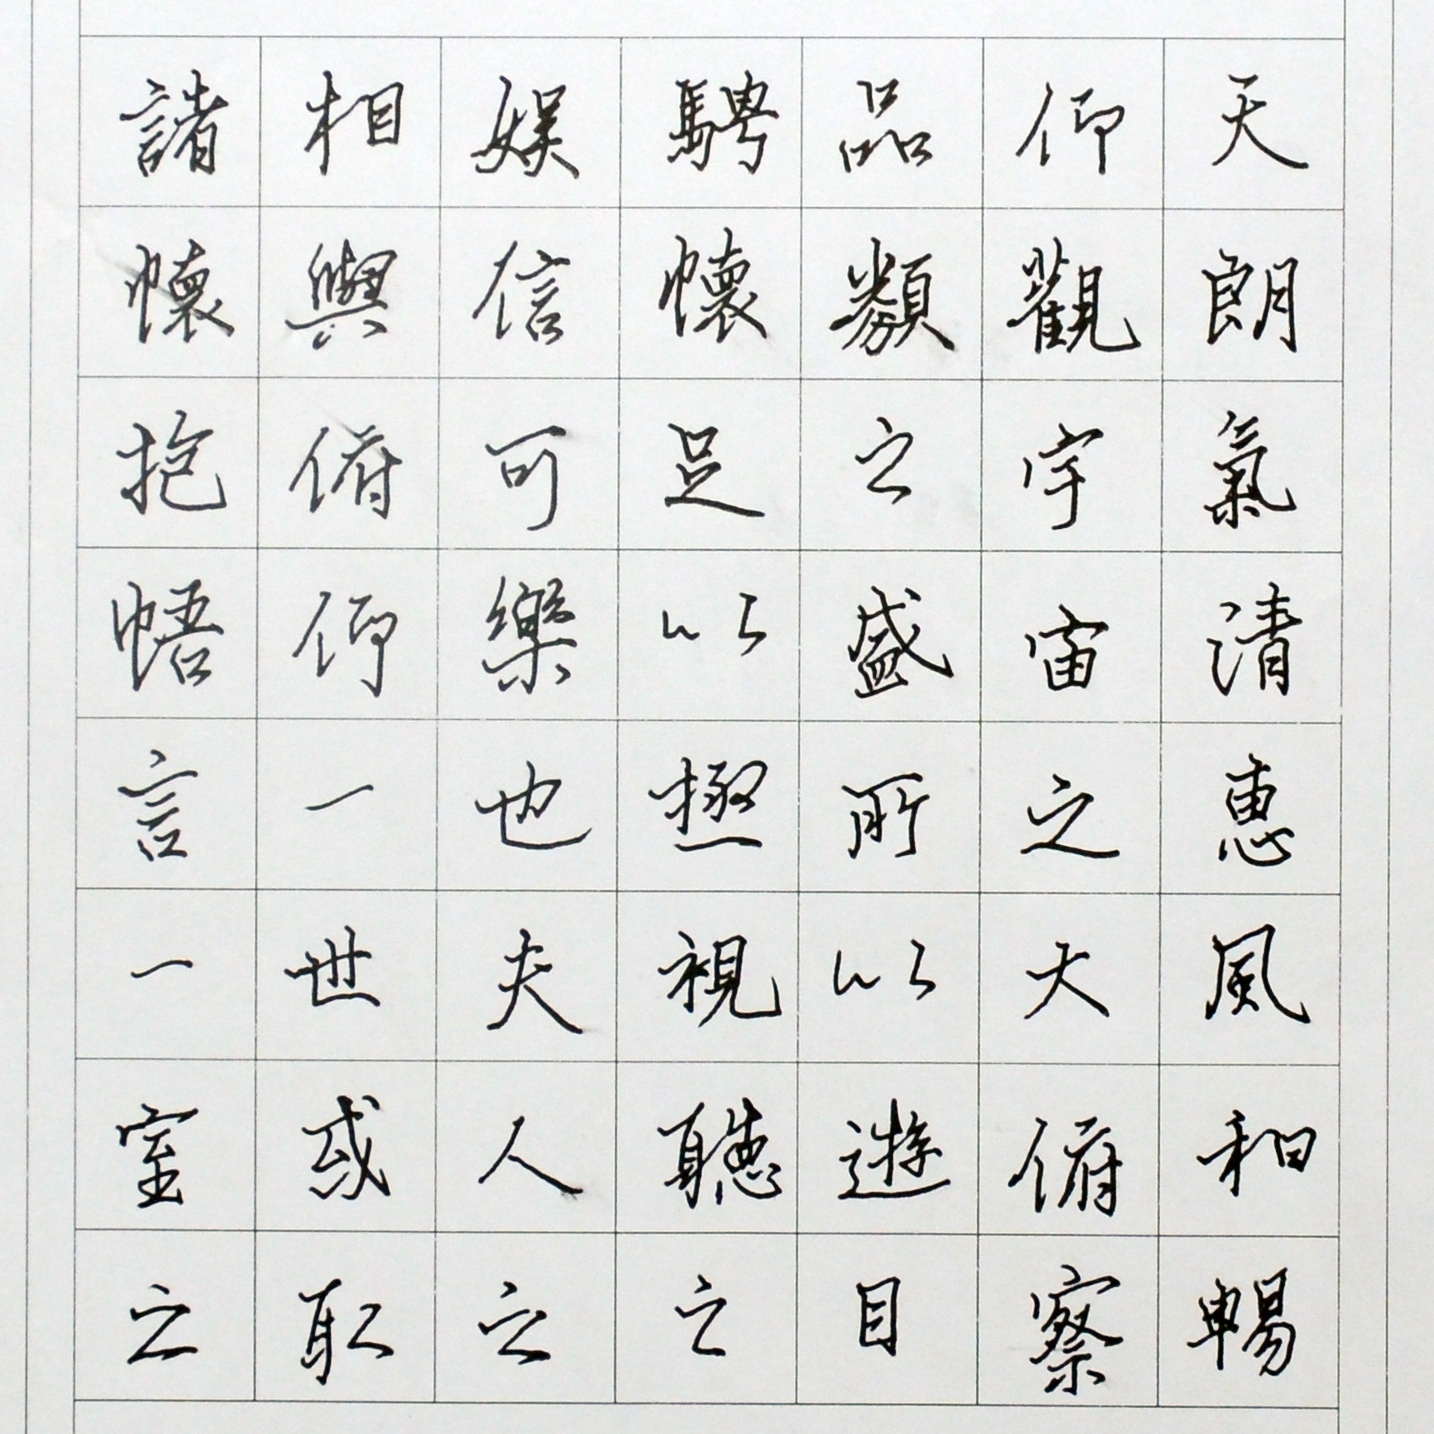 天朗氣清惠風和暢
仰觀宇宙之大俯察
品類之盛所以遊目
騁懷足以極視聽之
娛信可樂也夫人之
相與俯仰一世或取
諸懷抱悟言一室之